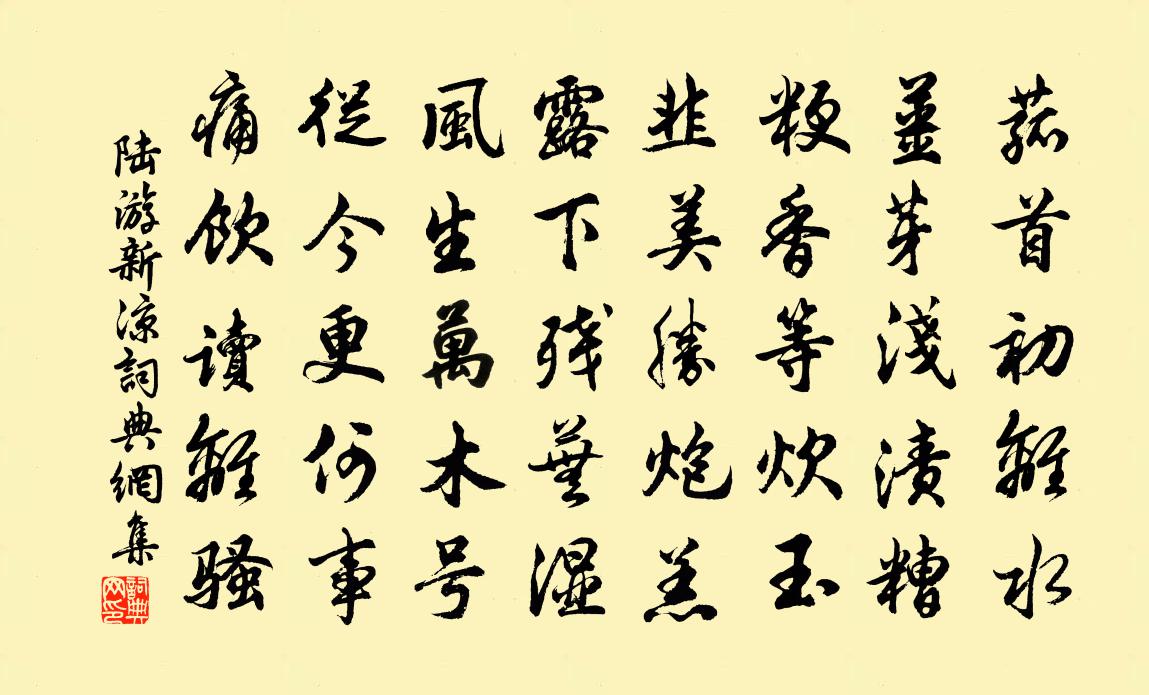 菰首初離水
薑芽淺漬糟
粳香等炊玉
韭美勝炮羔
露下殘蕪濕
風生萬木号
從今更何事
痛飲讀離騷
陆游新凉詞典網集
詞典网印